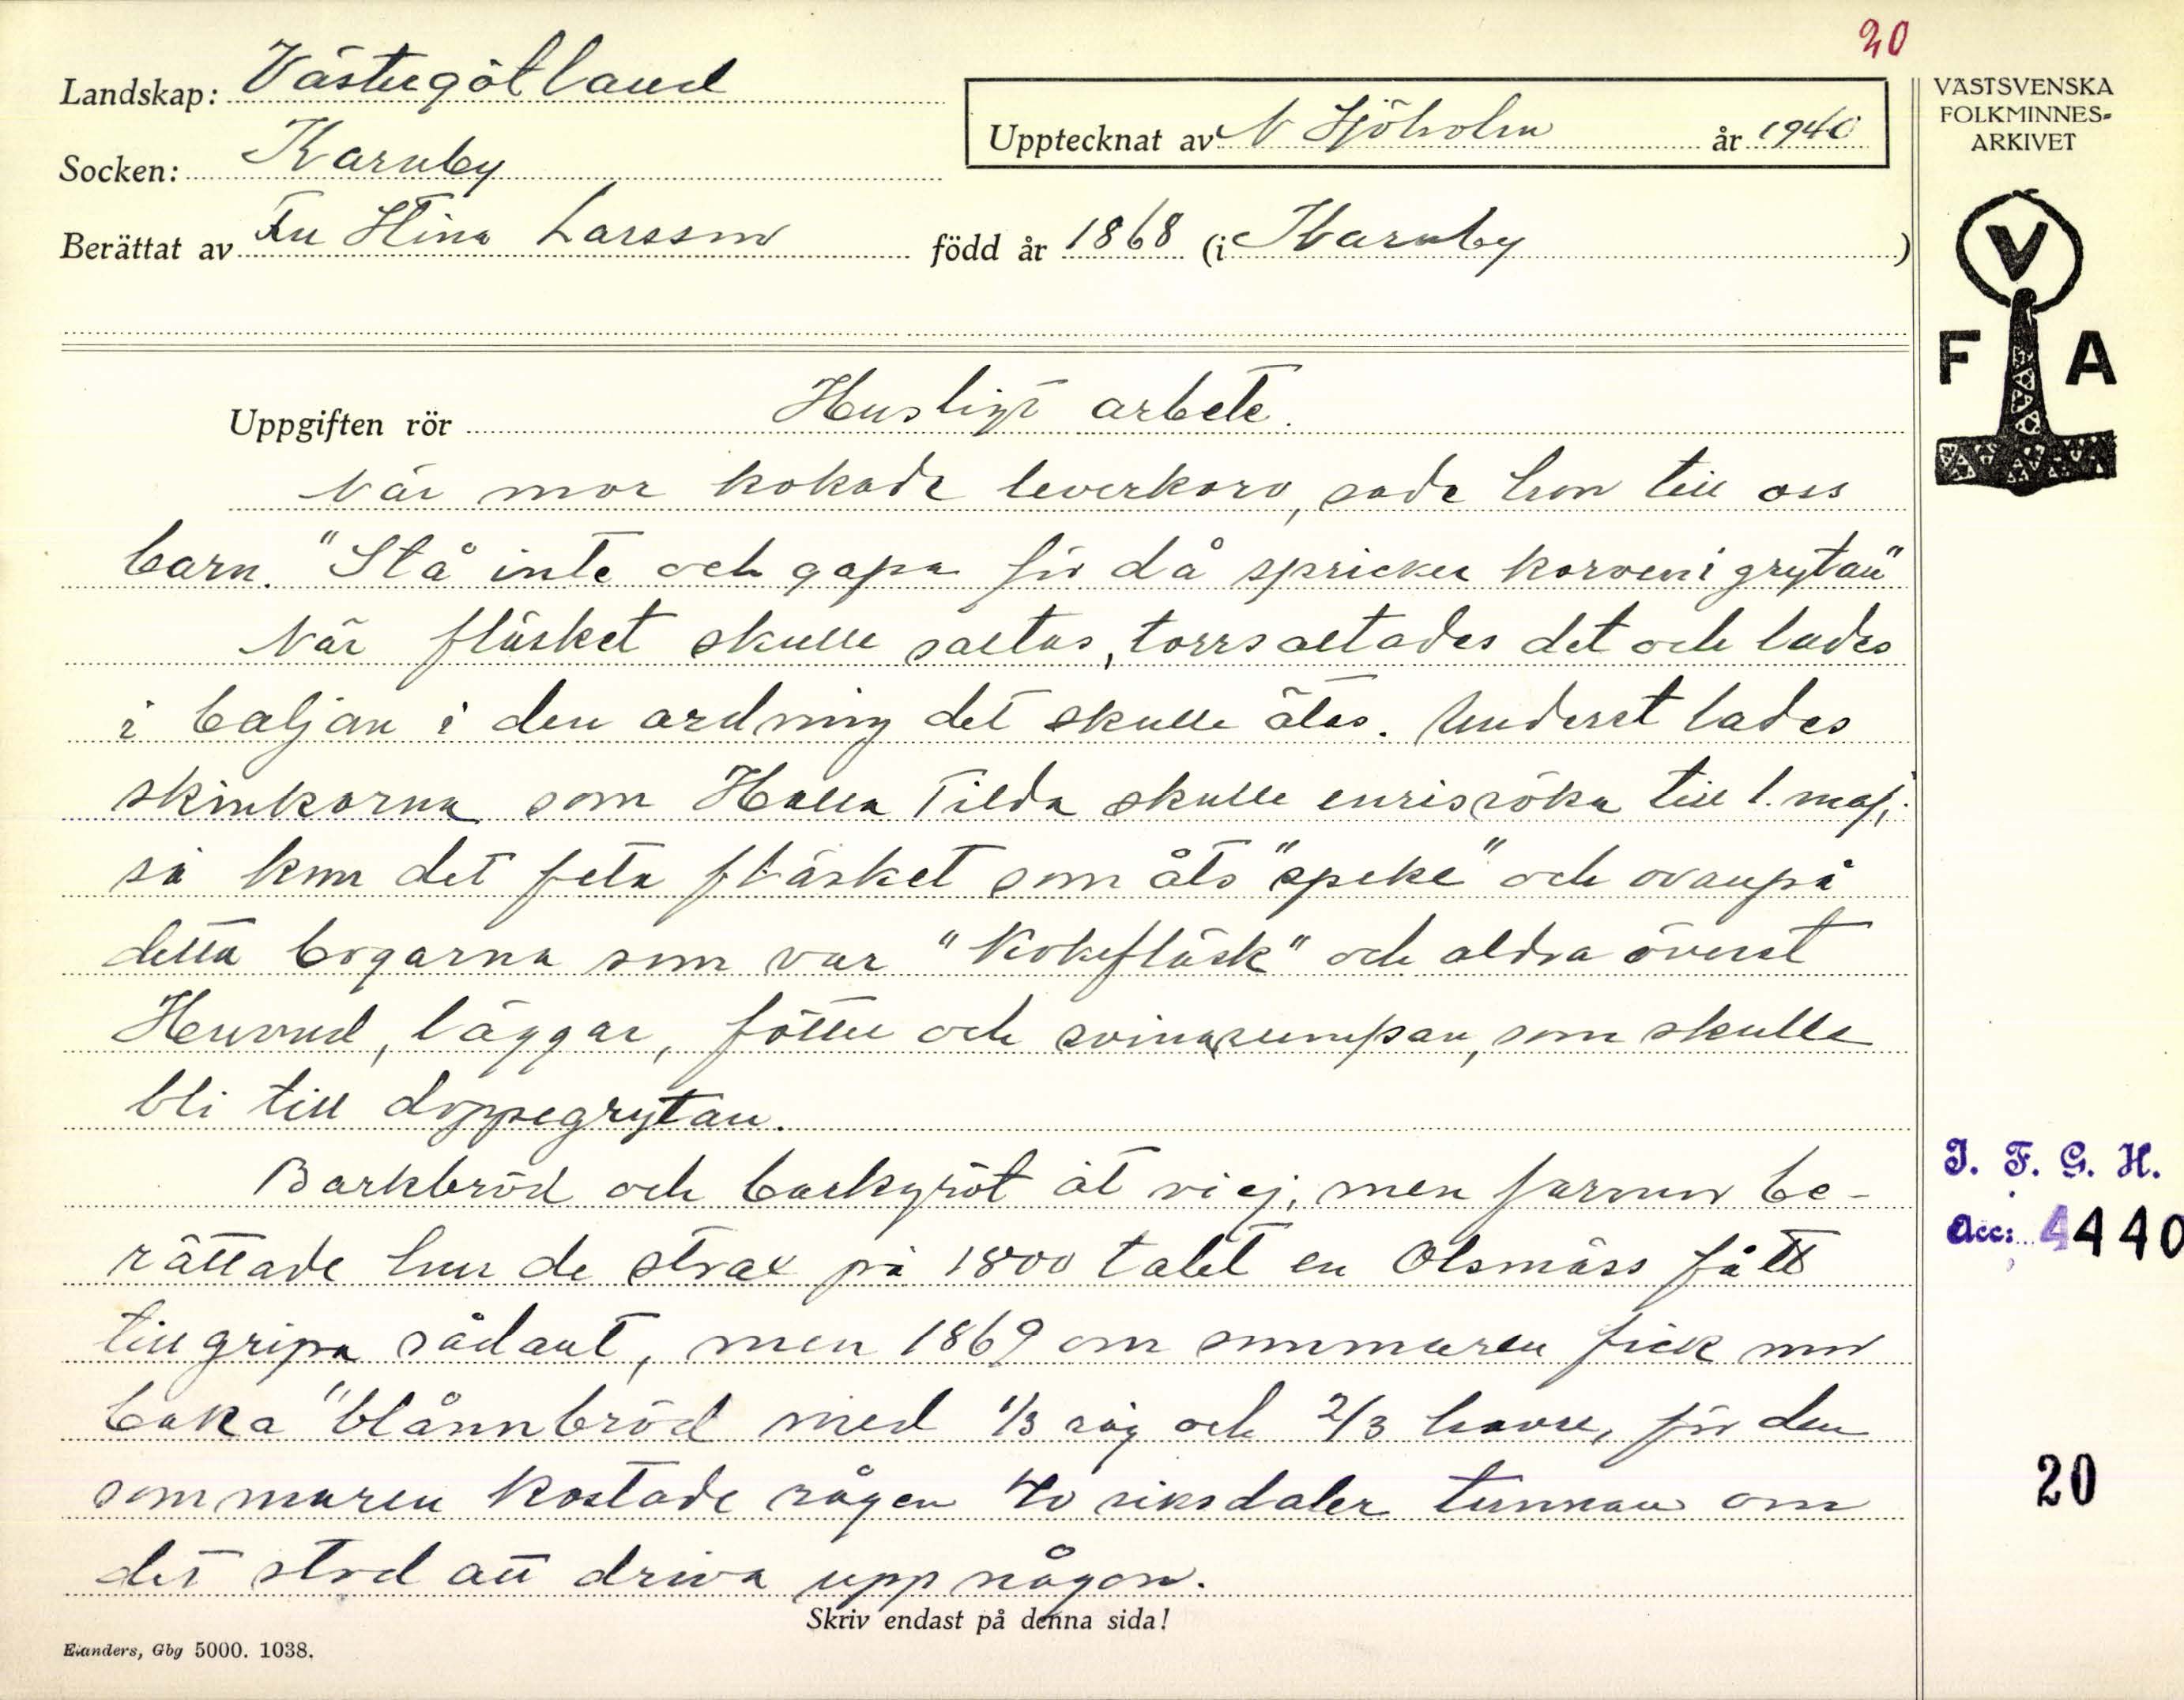 20
Landskap: Västergötland
Upptecknat av N Sjöholm år 1940
Socken: Karleby
Berättat av Fru Stina Larsson född år 1868 (i Karleby)
VÄSTSVENSKA
FOLKMINNES-
ARKIVET
V
F A
Uppgiften rör Husligt arbete.
När mor kokade leverkorv, sade hon till oss
barn. "Stå inte och gapa för då spricker korven i grytan"
När fläsket skulle saltas, torrsaltades det och lades
i baljan i den ordning det skulle ätas. Underst lades
skinkorna som Halla Tilda skulle enrisröka till 1. maj,
så kom det feta fläsket som åts "speke" och ovanpå
detta bogarna som var "Kokefläsk" och aldra överst
Huvud, läggar, fötter och svinarumpan, som skulle
bli till doppegrytan.
Barkbröd och barkgröt åt vi ej, men farmor be-
rättade hur de strax på 1800 talet en Olsmäss fått
tillgripa sådant, men 1869 om sommaren fick mor
baka "blånnbröd med 1/3 råg och 2/3 havre, för den
sommaren kostade rågen 40 riksdaler tunnan om
det stod att driva upp någon.
Skriv endast på denna sida!
Elanders, Gbg 5000. 1038.
I. F. G. H.
Acc: 4440
20